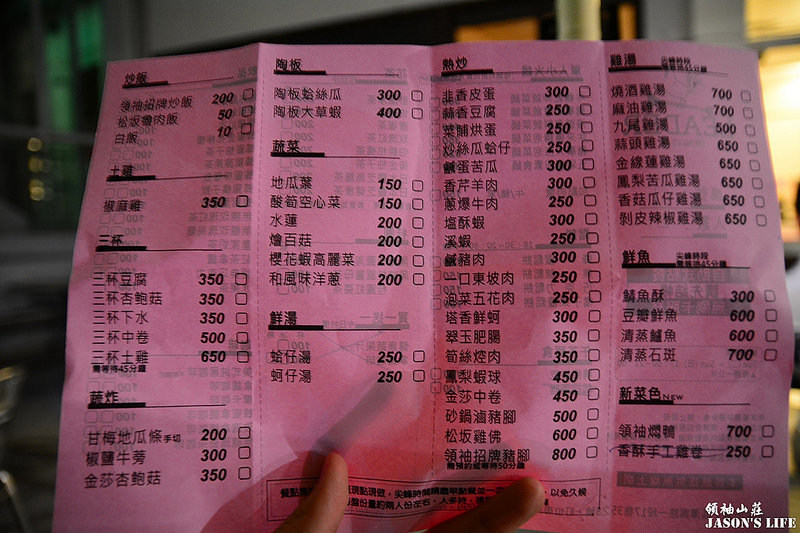 炒飯
領袖招牌炒飯 200
松坂魯肉飯 50
白飯 10
土雞
椒麻雞 350
三杯
三杯豆腐 350
三杯杏鮑菇 350
三杯下水 350
三杯中卷 500
三杯土雞 650
需等待45分鐘
蔬炸
甘梅地瓜條手切 200
椒鹽牛蒡 300
金莎杏鮑菇 350
陶板
陶板蛤絲瓜 300
陶板大草蝦 400
蔬菜
地瓜葉 150
酸筍空心菜 150
水蓮 200
燴百菇 200
櫻花蝦高麗菜 200
和風味洋蔥 200
鮮湯
蛤仔湯 250
蚵仔湯 250
熱炒
韭香皮蛋 300
蒜香豆腐 250
菜脯烘蛋 200
炒絲瓜蛤仔 250
鹹蛋苦瓜 300
香芹羊肉 300
蔥爆牛肉 250
塩酥蝦 300
溪蝦 250
鹹豬肉 300
一口東坡肉 250
泡菜五花肉 250
塔香鮮蚵 300
翠玉肥腸 350
筍絲焢肉 350
鳳梨蝦球 450
金莎中卷 450
砂鍋滷豬腳 500
松坂雞佛 600
領袖招牌豬腳 800
需預約或等待50分鐘
雞湯 尖峰時段需等待45分鐘
燒酒雞湯 700
麻油雞湯 700
九尾雞湯 500
蒜頭雞湯 650
金線蓮雞湯 650
鳳梨苦瓜雞湯 650
香菇瓜仔雞湯 650
剝皮辣椒雞湯 650
鮮魚 尖峰時段需等待45分鐘
鯖魚酥 300
豆瓣鮮魚 600
清蒸鱸魚 600
清蒸石斑 700
新菜色NEW
領袖燜鴨 700
香酥手工雞卷 250
以免久候
領袖山莊
JASON'S LIFE